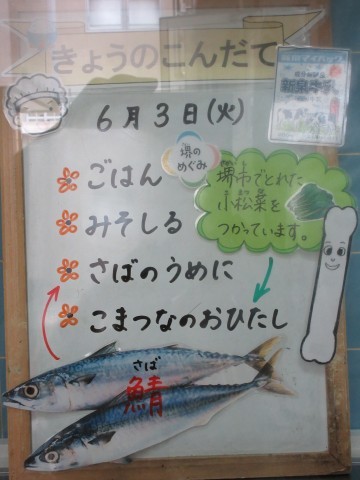 きょうのこんだて
6月3日(火)
堺の
めぐみ
ごはん
みそしる
さばのうめに
こまつなのおひたし
堺市でとれた
小松菜を
つかっています。
さば
鯖